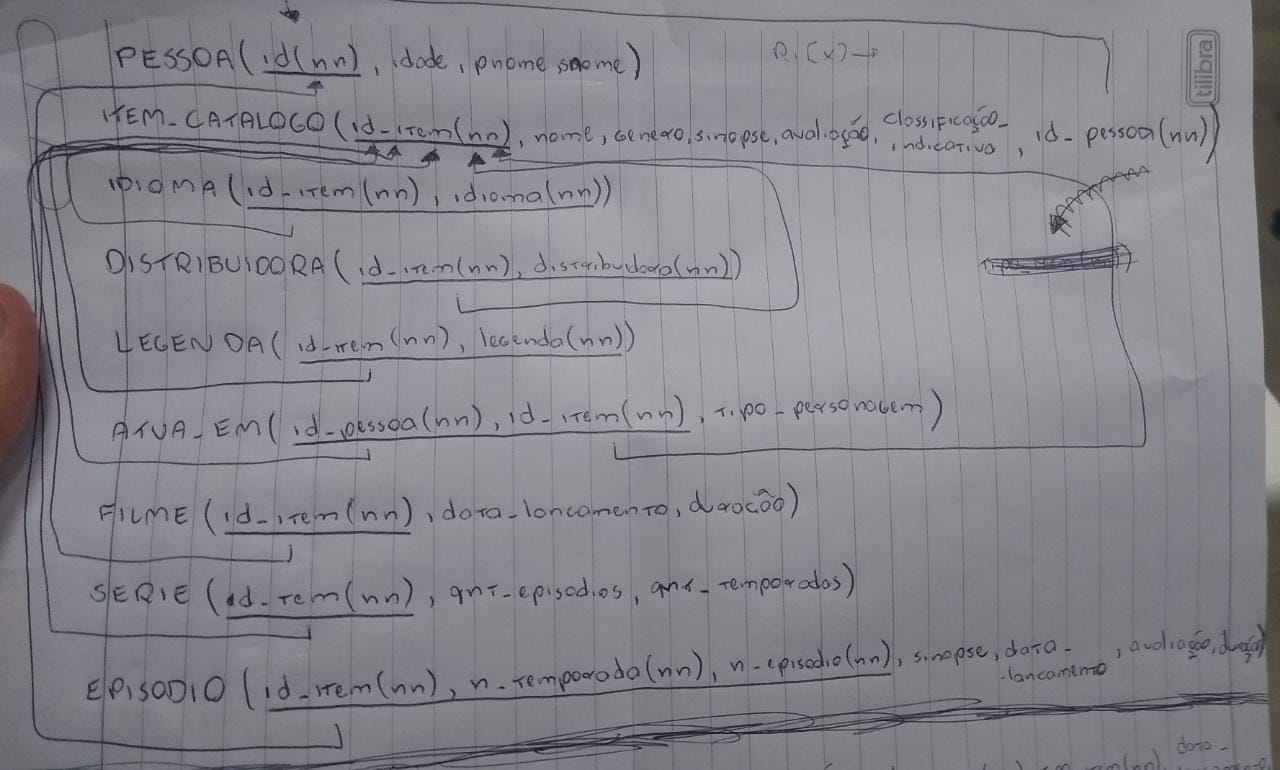 PESSOA(id(nn), idade, pnome, snome)
tilibra
ITEM_CATALOGO(id_item(nn), nome, genero, sinopse, avaliação, classificação_indicativa, id_pessoa(nn))
IDIOMA(id_item(nn), idioma(nn))
DISTRIBUIDORA(id_item(nn), distribuidora(nn))
LEGENDA(id_item(nn), legenda(nn))
ATUA_EM(id_pessoa(nn), id_item(nn), tipo_personagem)
FILME(id_item(nn), data_lancamento, duração)
SERIE(id_item(nn), qnt_episodios, qnt_temporadas)
EPISODIO(id_item(nn), n_temporada(nn), n_episodio(nn), sinopse, data_lancamento, avaliação, duração)